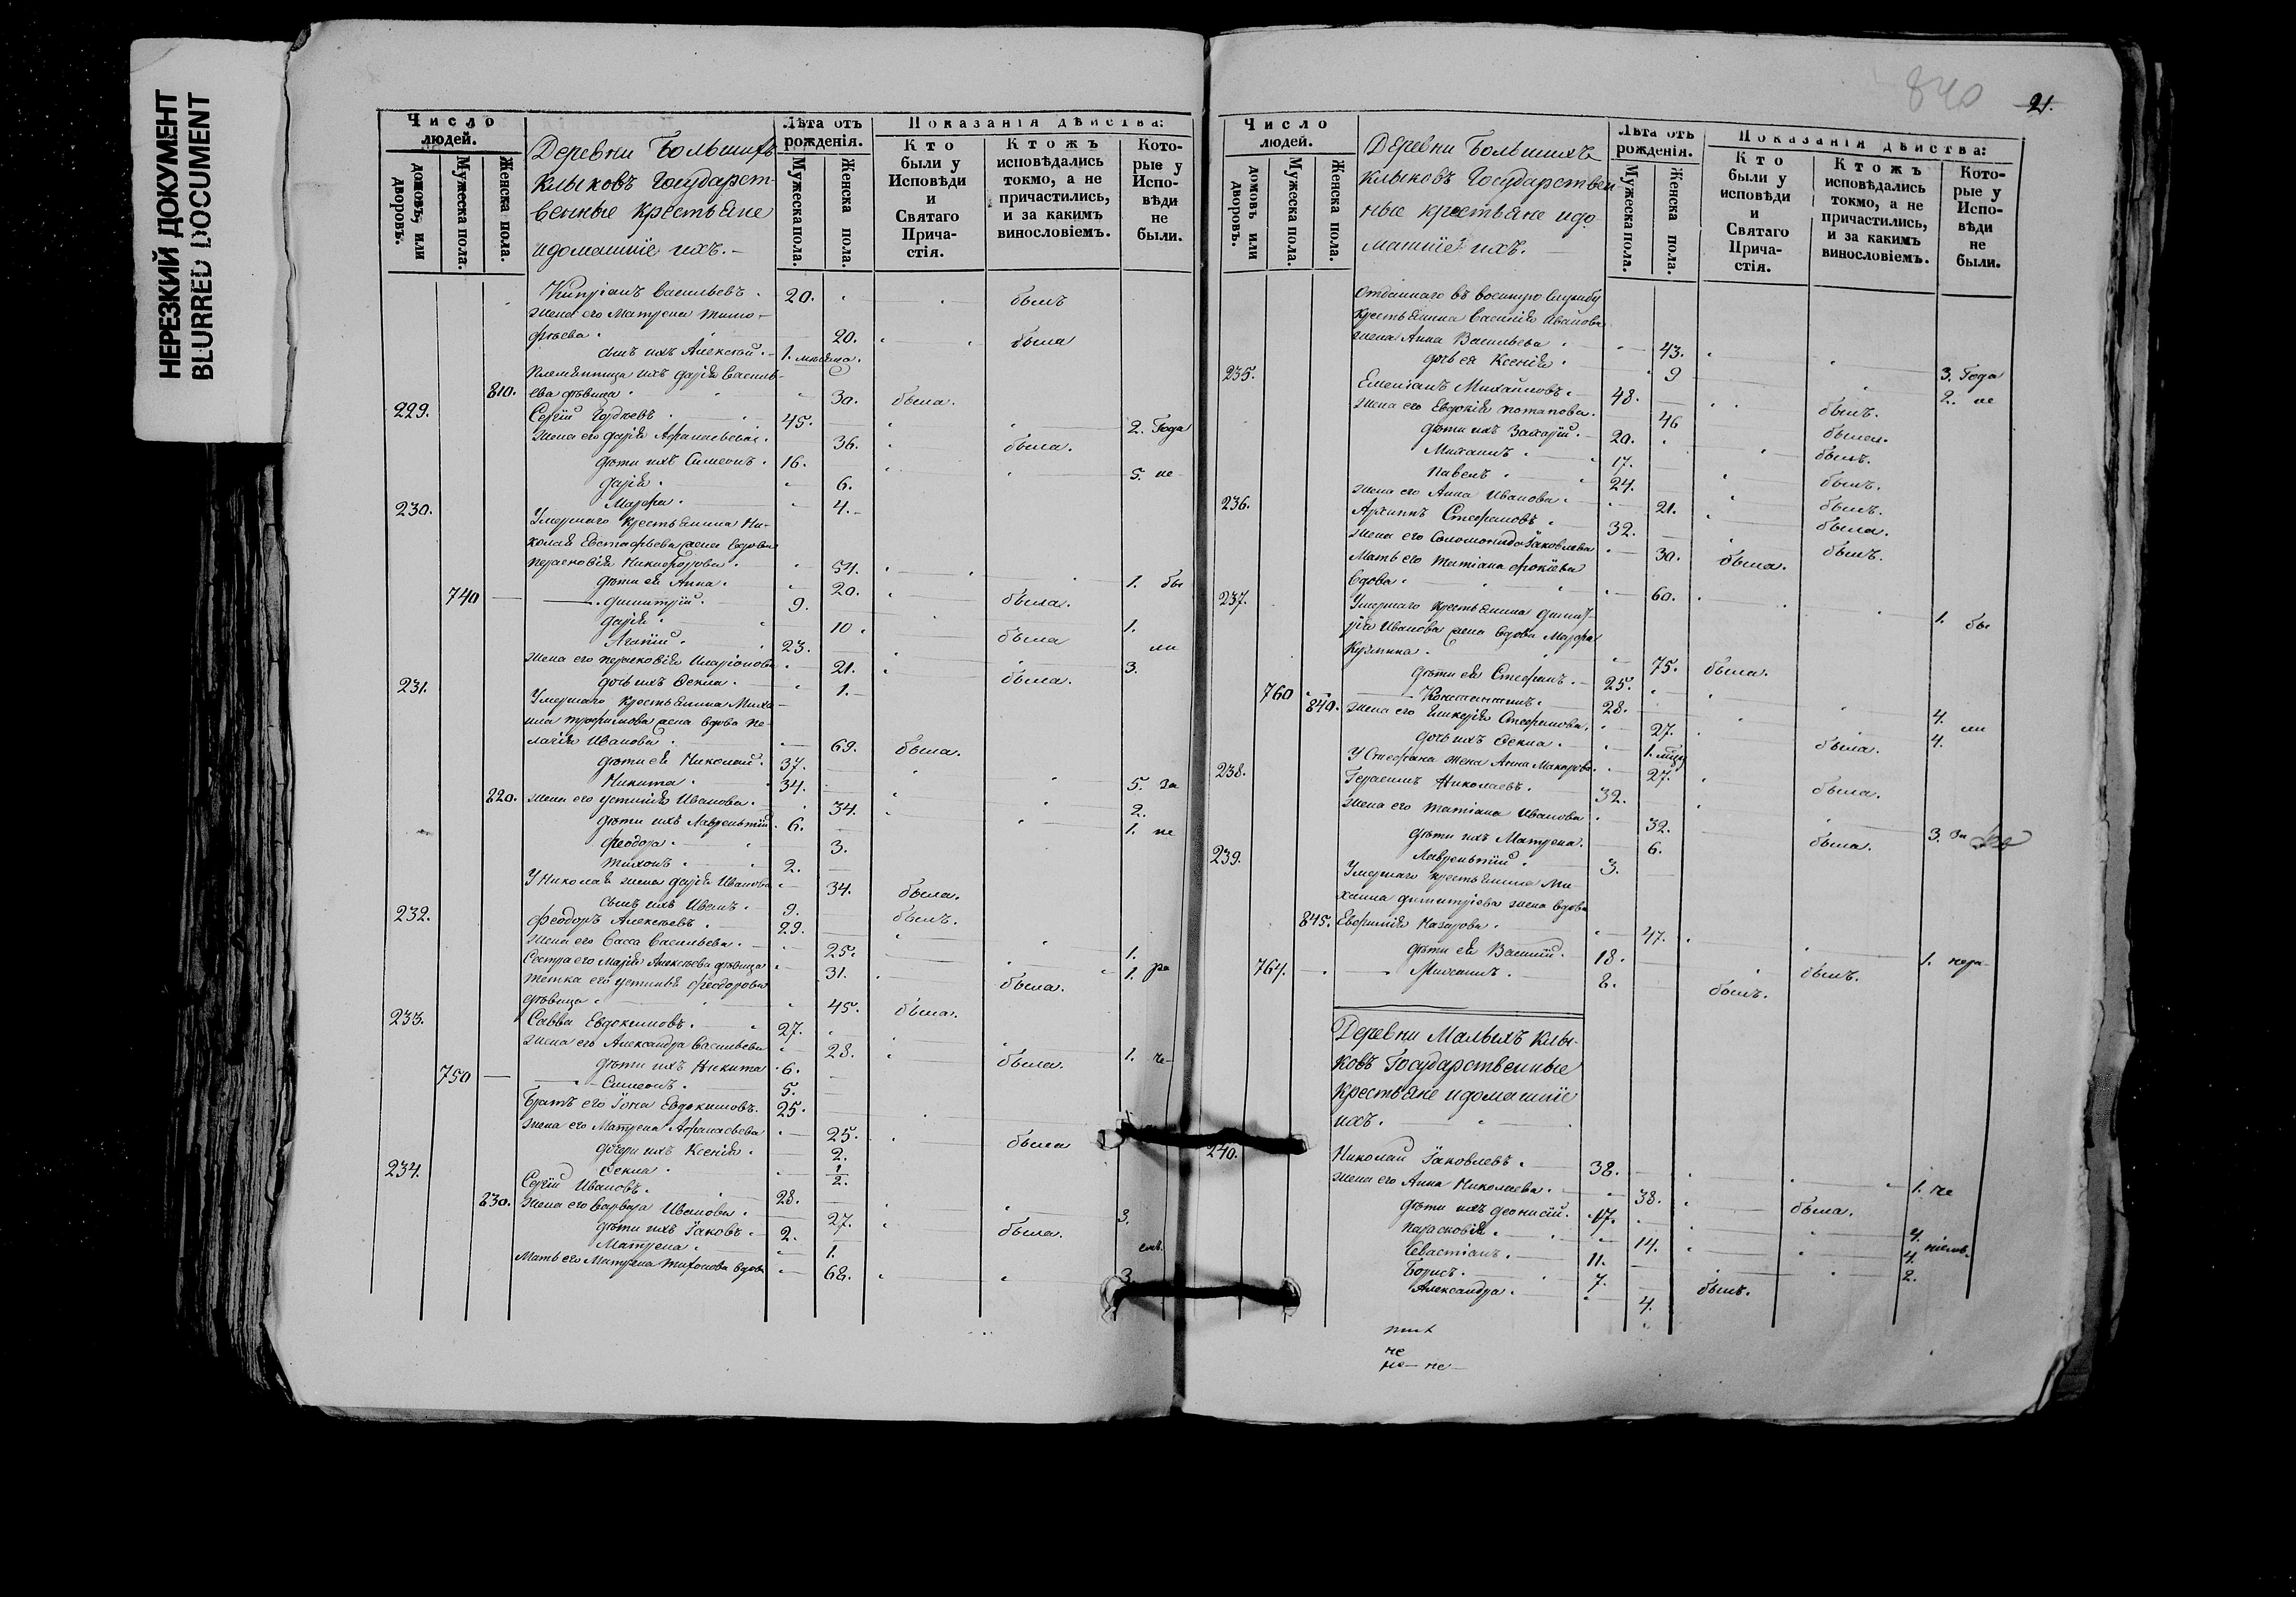 НЕРЕЗКИЙ ДОКУМЕНТ
BLURRED DOCUMENT
Число людей.
домовъ, или дворовъ.
Мужеска пола.
Женска пола.
Деревни Большихъ
Клыковъ Государст-
венные крестьяне
и домашніе ихъ.
Лѣта отъ рожденія.
Мужеска пола.
Женска пола.
Показанія дѣйства:
Кто были у Исповѣди и Святаго Прича-стія.
Ктожъ исповѣдались токмо, а не причастились, и за какимъ винословіемъ.
Кото-рые у Испо-вѣди не были.
Кипріанъ Васильевъ. 20. былъ
жена его Матрена Тимо-
фѣева. 20. была
сынъ ихъ Алексѣй. 1. мѣсяца.
племянница ихъ Дарія Василь-
810. ева дѣвица. 30. была.
229. Сергій Гордѣевъ 45. 2. Года
жена его Дарія Афанасьева. 36. была.
дѣти ихъ Симеонъ. 16. 5. не
Дарія. 6.
Марфа. 4.
230. Умершаго крестьянина Ни-
колая Евстафьева жена вдова
Парасковія Никифорова. 54. 1. бы
дѣти ея Анна. 20. была.
740 Димитрій. 9.
Дарія. 10. 1.
Агапій. 23. была ли
жена его Парасковія Иларіонова 21. 3.
дочь ихъ Ѳекла. 1. была.
231. Умершаго крестьянина Миха-
ила Трофимова жена вдова Пе-
лагія Иванова. 69. была.
дѣти ея Николай. 37.
Никита. 34. 5. за
820. жена его Устинія Иванова. 34. 2.
дѣти ихъ Лаврентій 6. 1. не
Феодора. 3.
Тихонъ. 2.
У Николая жена Дарія Иванова 34. была.
сынъ ихъ Иванъ. 9. былъ.
232. Феодоръ Алексѣевъ. 29.
жена его Васса Васильева. 25. 1.
Сестра его Марія Алексѣева дѣвица 31. 1. ра
тетка его Устинья Феодорова была.
дѣвица. 45. была.
233. Савва Евдокимовъ. 27.
жена его Александра Васильева 28. 1. че-
дѣти ихъ Никита 6. была.
750 Симеонъ. 5.
Братъ его Іона Евдокимовъ. 25.
жена его Матрена Афанасьева 25. была
дочери ихъ Ксенія. 2.
Ѳекла. 1/2.
234. Сергій Ивановъ. 28.
830. жена его Варвара Иванова. 27. 3.
дѣти ихъ Іаковъ. 2. была.
Матрена. 1.
Мать его Матрена Тихонова вдова 68. 3.
840
21.
Число людей.
домовъ или дворовъ.
Мужеска пола.
Женска пола.
Деревни Большихъ
Клыковъ Государствен-
ные крестьяне и до-
машніе ихъ.
Лѣта отъ рожденія.
Мужеска пола.
Женска пола.
Показанія дѣйства:
Кто были у исповѣди и Святаго Прича-стія.
Ктожъ исповѣдались токмо, а не причастились, и за какимъ винословіемъ.
Кото-рые у Испо-вѣди не были.
Отданнаго въ военную службу
крестьянина Василія Иванова
жена Анна Васильева. 43.
дочь ея Ксенія. 9 3. Года
235. Емеліанъ Михайловъ. 48. 2. не
жена его Евдокія Потапова. 46 былъ.
дѣти ихъ Захарій. 20. была.
Михаилъ. 17. былъ.
Павелъ. 24. былъ.
жена его Анна Иванова. 21. былъ.
236. Архиппъ Стефановъ. 32. была.
жена его Соломонида Іаковлева 30. былъ.
Мать его Татіана Фокіева была.
вдова. 60.
237. Умершаго крестьянина Димит-
рія Иванова жена вдова Марфа 1. бы
Кузмина. 75. была.
дѣти ея Стефанъ. 25.
760 Константинъ. 28.
840. жена его Гликерія Стефанова. 27. 4. ли
дочь ихъ Ѳекла. 1. мѣся 4.
У Стефана жена Анна Макарова. 27. была.
238. Герасимъ Николаевъ. 32.
жена его Татіана Иванова 32. была.
дѣти ихъ Матрена. 6. 3. за
239. Лаврентій. 3. была.
Умершаго крестьянина Ми-
хаила Димитріева жена вдова
845. Евфимія Назарова. 47.
дѣти ея Василій. 18. 1. нера-
764. Михаилъ. 8. былъ.
былъ.
Деревни Малыхъ Клы-
ковъ Государственные
крестьяне и домашніе
ихъ.
240. Николай Іаковлевъ. 38.
жена его Анна Николаева. 38. 1. че
дѣти ихъ Деонисій. 17. была.
Парасковія. 14. 4.
Севастіанъ. 11. 4.
Борисъ. 7. 2.
Александра. 4. былъ.
не
не — не